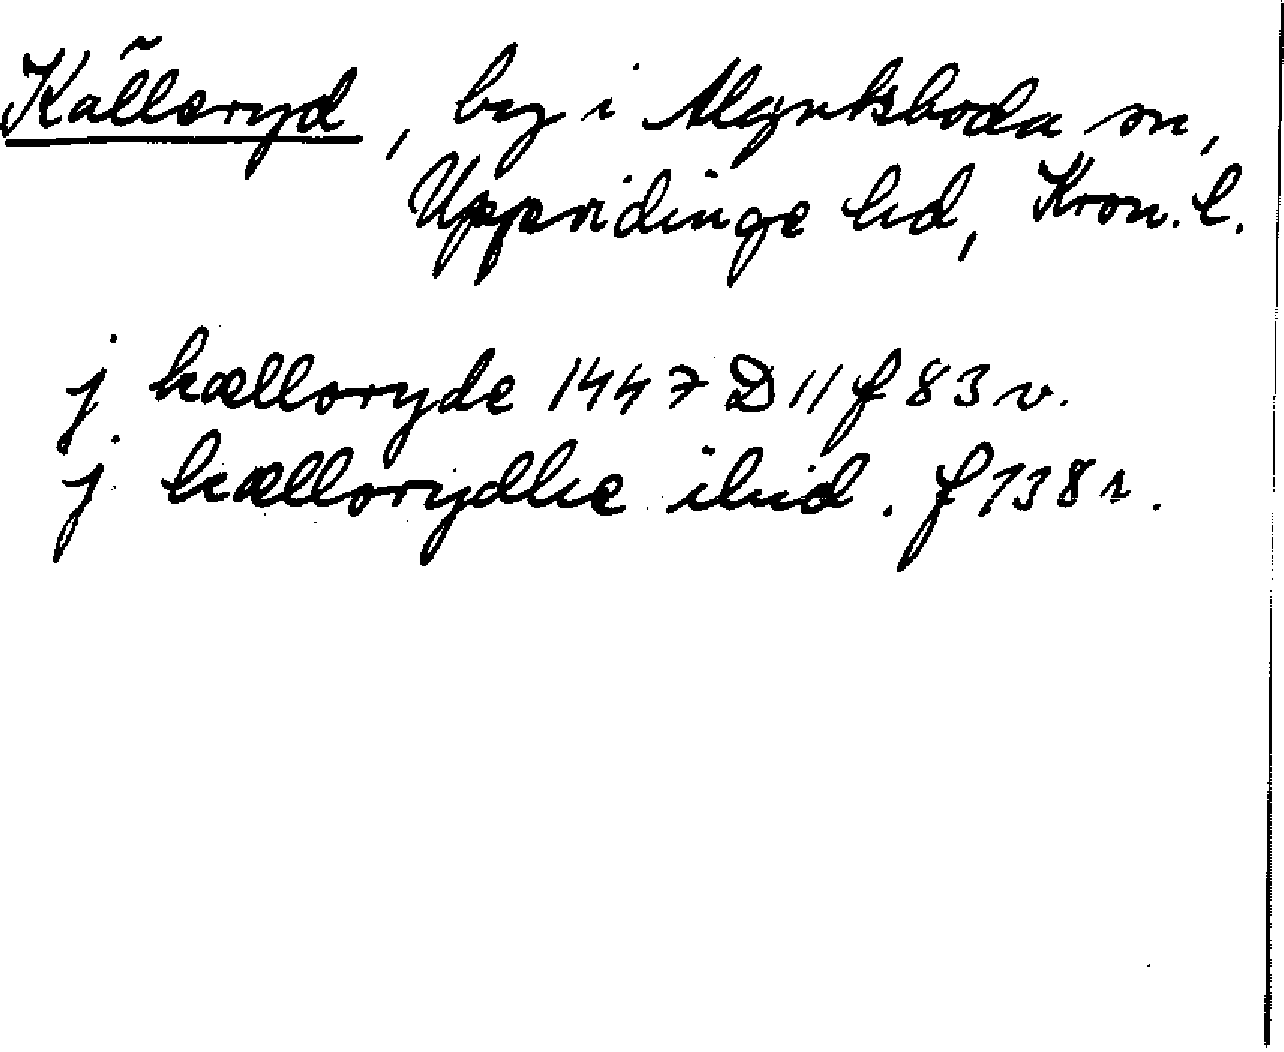 Källeryd, by i Algutsboda sn,
Uppvidinge hd, Kron. l.
j kælloryde 1447 D 11 f 83 v.
j kællorydhe ibid. f 138 r.